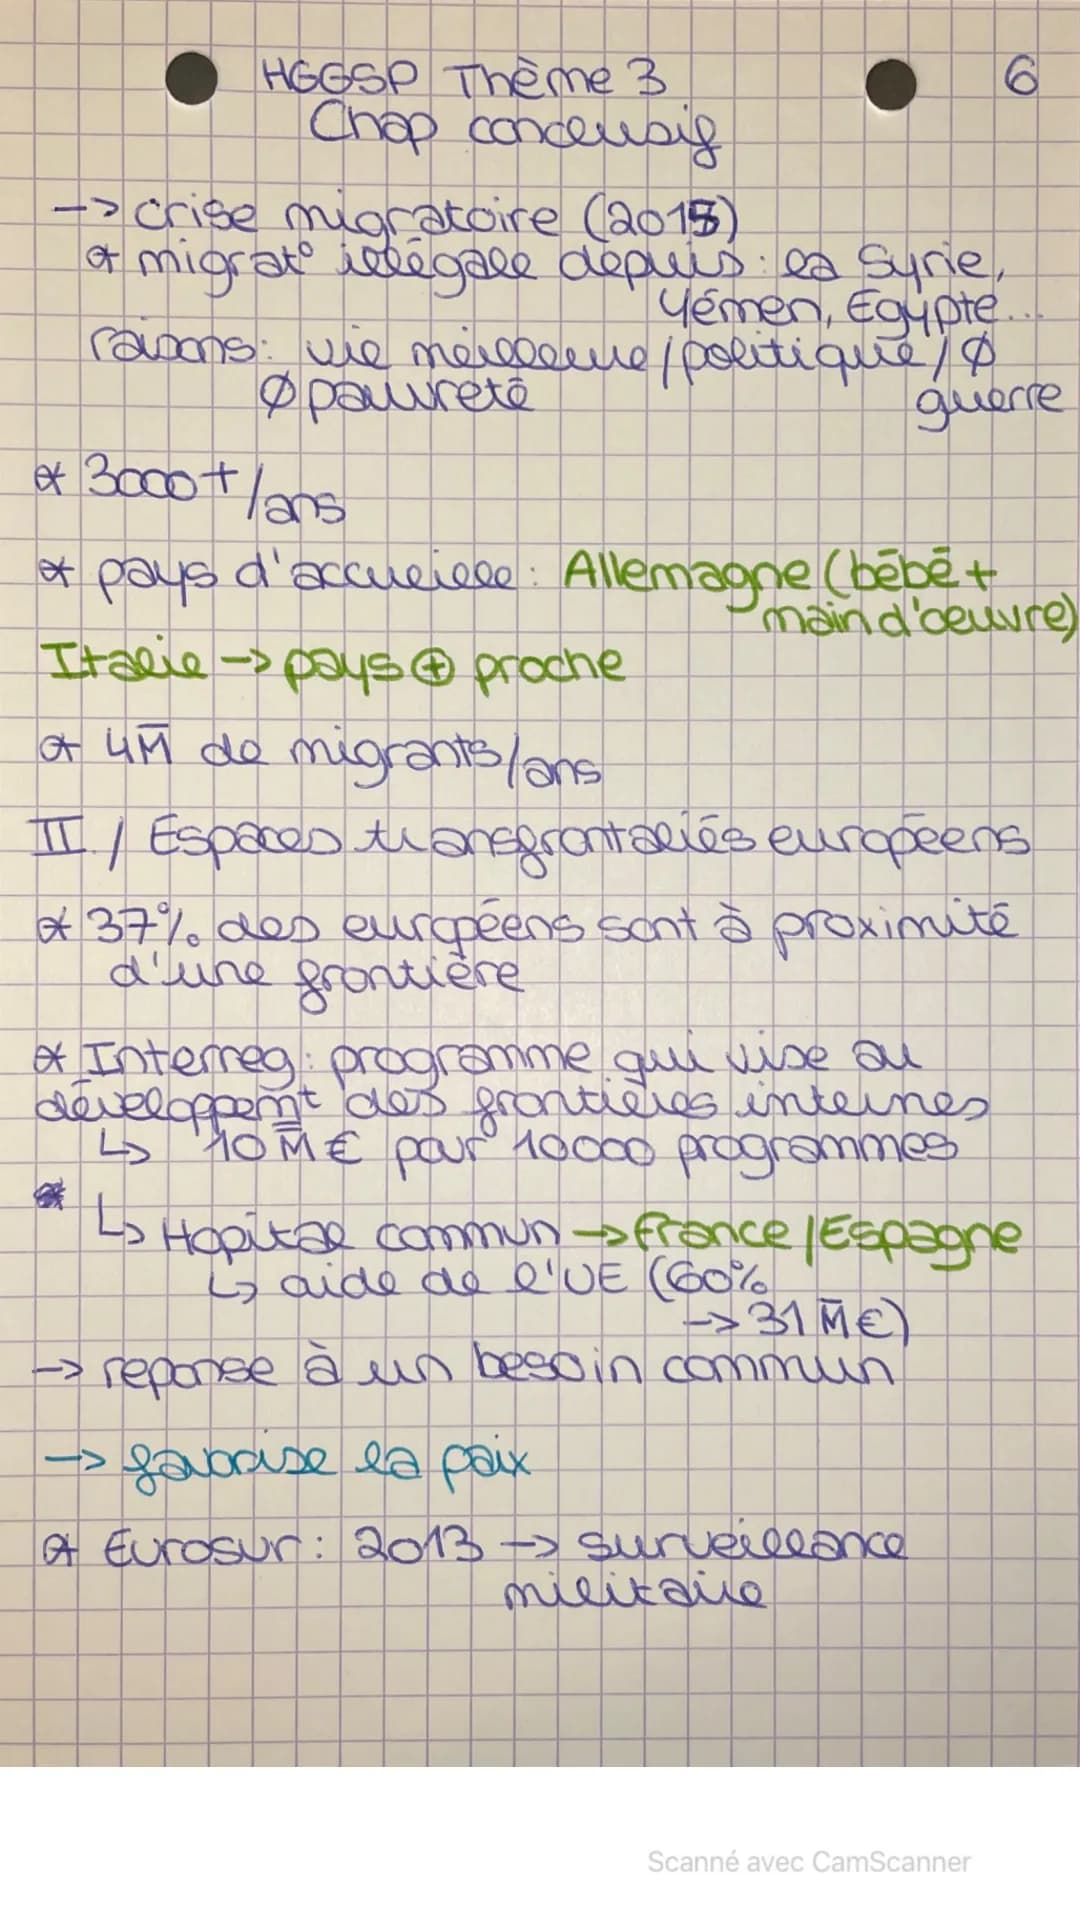 HGGSP Thème 3
6
Chap conclusif
-> crise migratoire (2015)
* migrat° illégale depuis : la Syrie,
Yémen, Égypte...
raisons : vie meilleure / politique / Ø
Ø pauvreté guerre
* 3000+/ans
* pays d'accueille : Allemagne (bébé +
main d'œuvre)
Italie -> pays ⊕ proche
* 4M̄ de migrants/ans
II / Espaces transfrontaliés européens
* 37% des européens sont à proximité
d'une frontière
* Interreg : programme qui vise au
développemt des frontières internes
↳ 10 M̿ € pour 10000 programmes
↳ Hopital commun -> France / Espagne
↳ aide de l'UE (60%
-> 31 M̄ €)
-> reponse à un besoin commun
-> favorise la paix
* Eurosur : 2013 -> surveillance
militaire
Scanné avec CamScanner